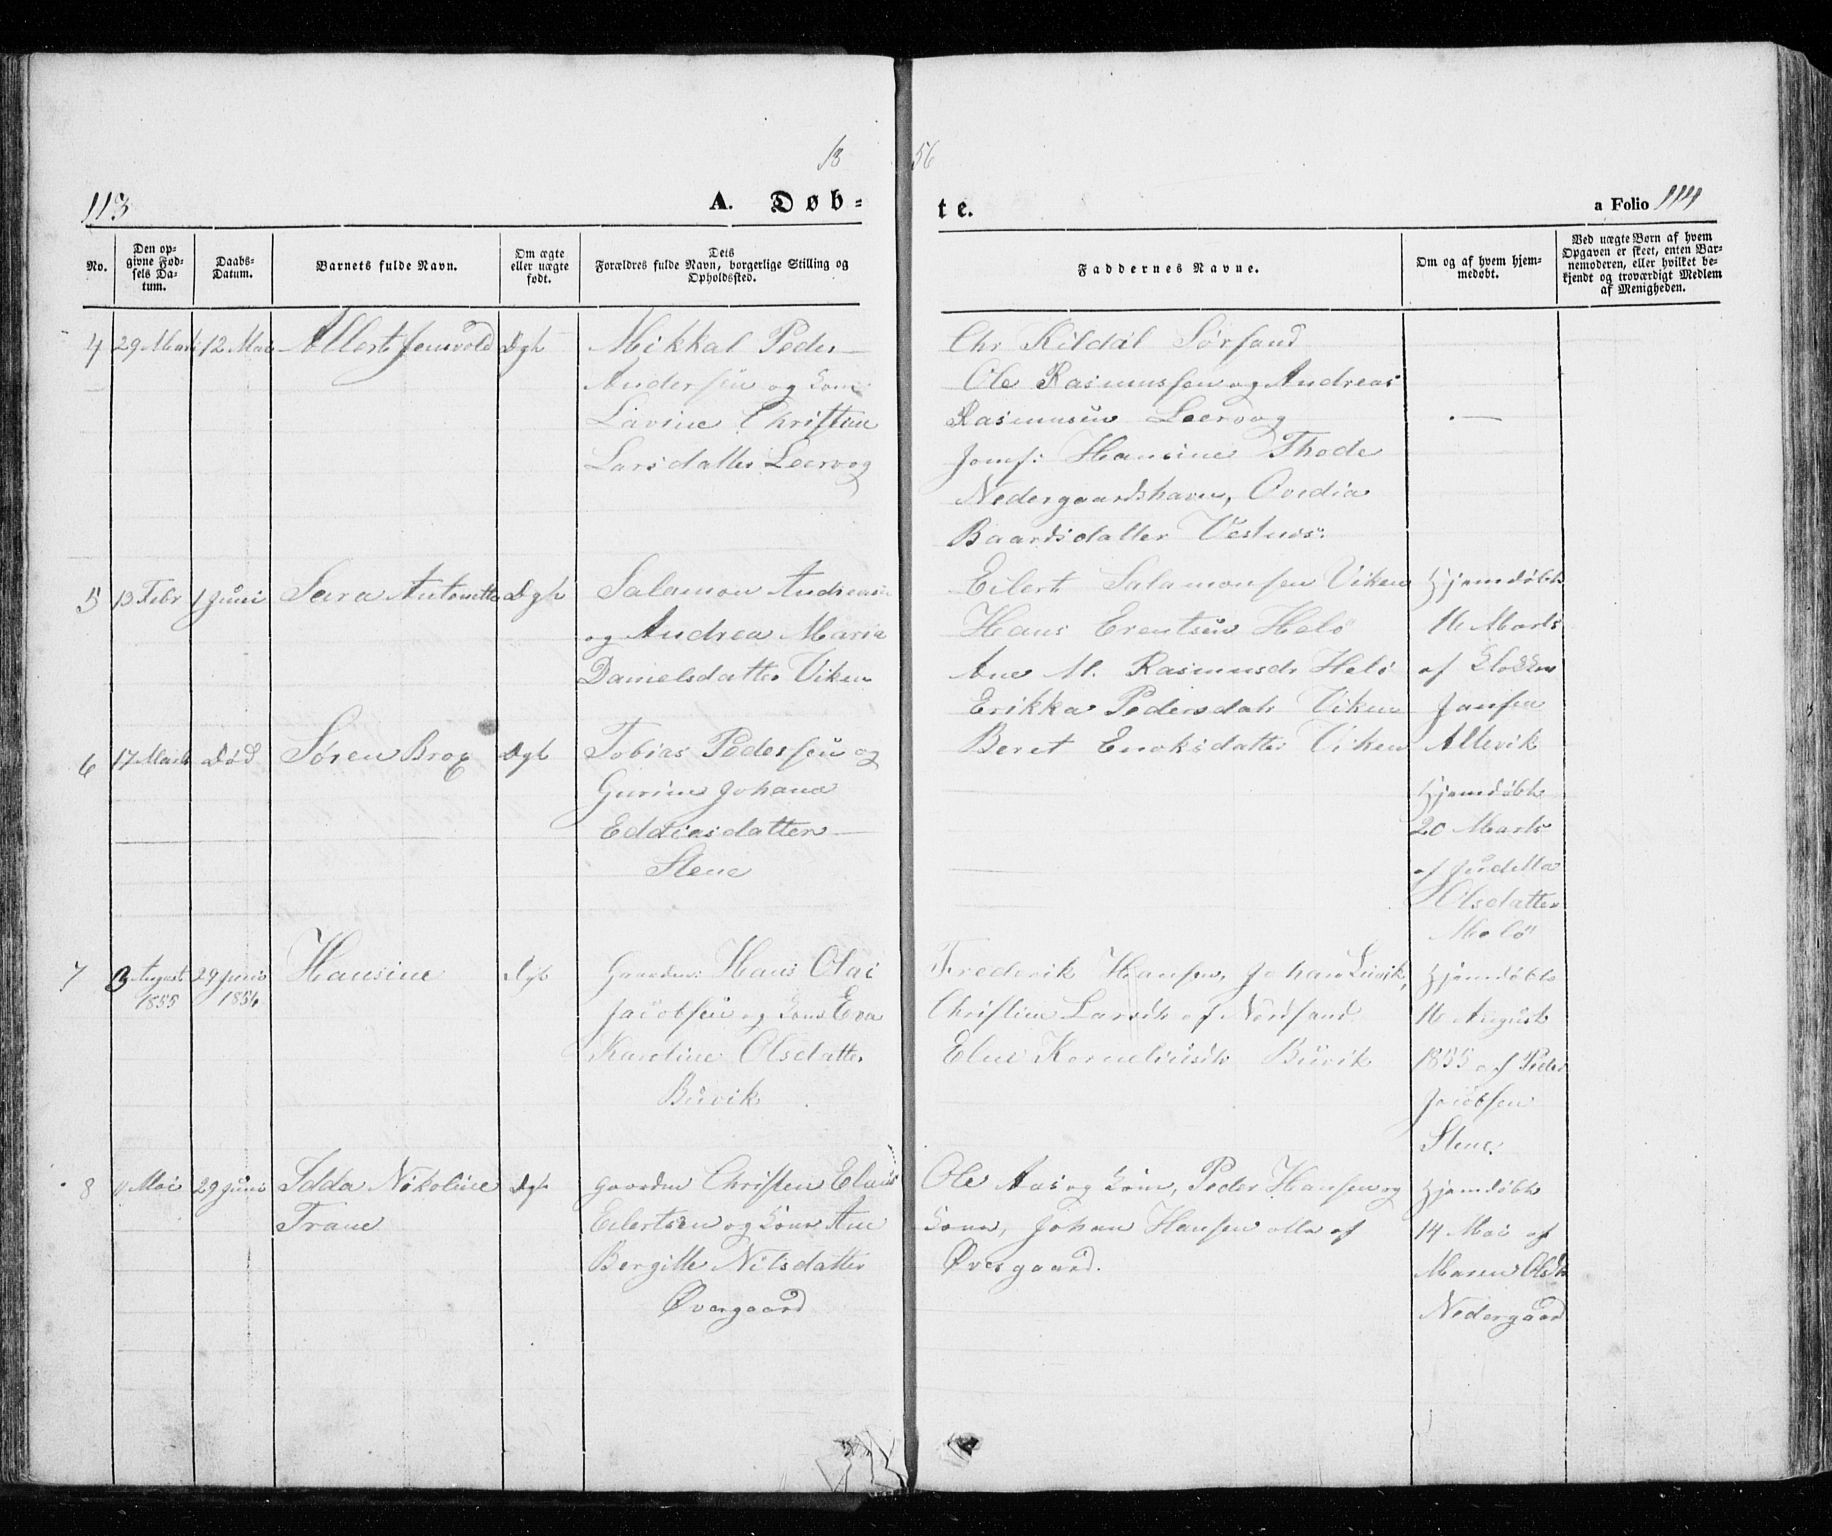 18 56
113
A. Døb-
te.
a Folio 114
No.
Den op-
givne Fød-
sels Da-
tum.
Daabs-
Datum.
Barnets fulde Navn.
Om ægte
eller uægte
født.
Dets
Forældres fulde Navn, borgerlige Stilling og
Opholdssted.
Faddernes Navne.
Om og af hvem hjem-
medøbt.
Ved uægte Børn af hvem
Opgaven er skeet, enten Bar-
nemoderen, eller hvilket be-
kjendt og troværdigt Medlem
af Menigheden.
4 29 Marts 12 Mai Albert Jensvold Ægte
Mikkal Peder
Andersen og Kone
Lavine Christine
Larsdatter Leervog
Chr Kildal Sørsand
Ole Rasmussen og Andreas
Rasmusen Leervog
Jomf: Hansine Thode
Nedergaardshavn, Ovedia
Baardsdatter Vestnes.
—
5 13 Febr 1 Juni Sara Antonette Ægte
Salamon Andreasen
og Andrea Maria
Danielsdatter Viken
Eilert Salamonsen Viken
Hans Erentsen Helø
Ane M. Rasmusdr Helø
Erikka Pedersdatr Viken
Beret Enoksdatter Viken
Hjemdøbt
16 Marts
af Klokker
Jansen
Allevik
6 17 Marts Død Søren Brox Ægte
Tobias Pedersen og
Gurine Johana
Eddiasdatter
Stene
Hjemdøbt
20 Marts
af
Olsdatter
Molø
7 3 August 1855 29 Juni 1856 Hansine Ægte
Gaardm: Hans Olai
Jacobsen og Kone Eva
Karoline Olsdatter
Buvik
Frederik Hansen, Johan Leivik,
Christine Larsdr af Nordsand
Elne Korneliusdr Buvik
Hjemdøbt
16 August
1855 af Peder
Jacobsen
Stene.
8 11 Mai 29 Juni Idda Nikoline
Trane Ægte
Gaardm Christen Elias
Eilertsen og Kone Ane
Bergitte Nilsdatter
Øvergaard
Ole Aas og Kone, Peder Hansen og
Kone, Johan Hansen alle af
Øvergaard.
Hjemdøbt
14 Mai af
Maren Olsdr
Nedergaard